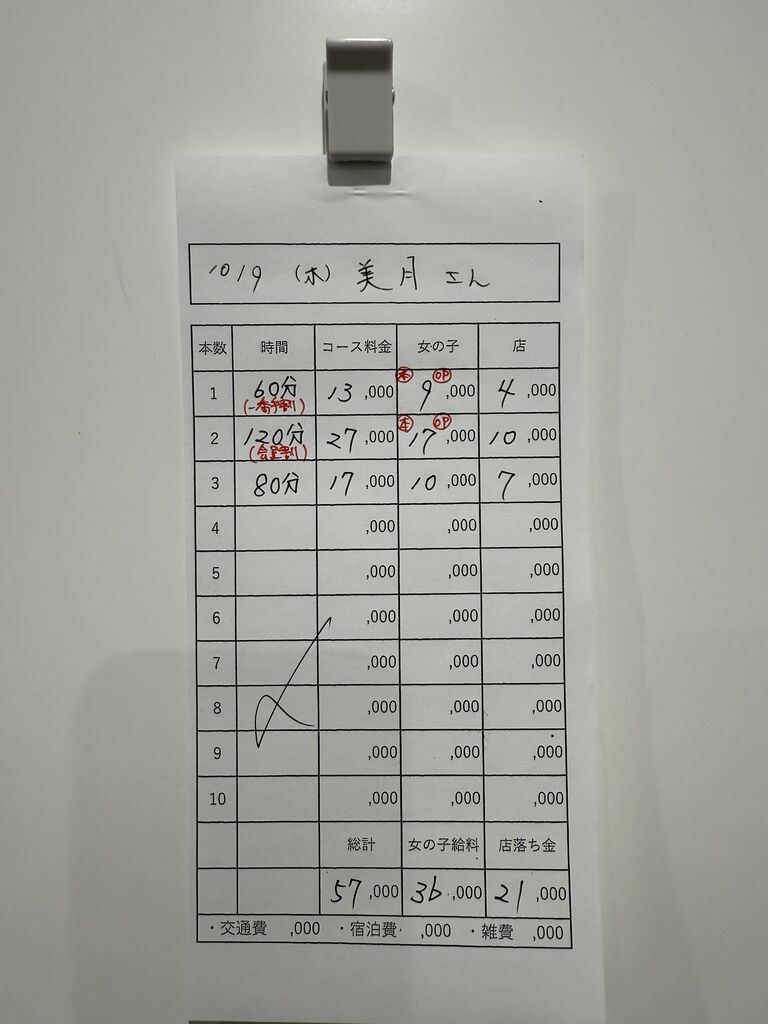 10/9 (木) 美月 さん
本数 時間 コース料金 女の子 店
1 60分 (一番手割) 13 ,000 本 OP 9 ,000 4 ,000
2 120分 (会員割) 27 ,000 本 OP 17 ,000 10 ,000
3 80分 17 ,000 10 ,000 7 ,000
4 ,000 ,000 ,000
5 ,000 ,000 ,000
6 ,000 ,000 ,000
7 ,000 ,000 ,000
8 ,000 ,000 ,000
9 ,000 ,000 ,000
10 ,000 ,000 ,000
総計 女の子給料 店落ち金
57 ,000 36 ,000 21 ,000
・交通費 ,000 ・宿泊費 ,000 ・雑費 ,000